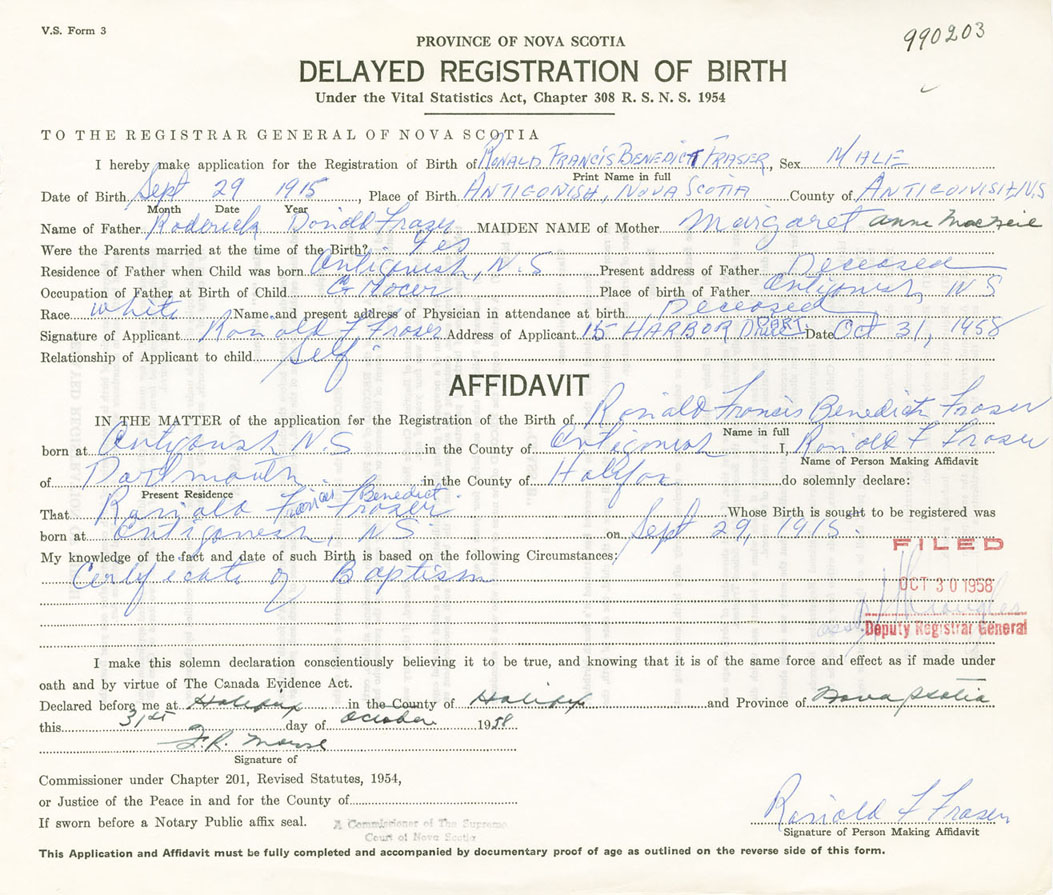 V.S. Form 3
990203
PROVINCE OF NOVA SCOTIA
DELAYED REGISTRATION OF BIRTH
Under the Vital Statistics Act, Chapter 308 R. S. N. S. 1954
TO THE REGISTRAR GENERAL OF NOVA SCOTIA
I hereby make application for the Registration of Birth of RONALD FRANCIS BENEDICT FRASER, Sex MALE
Print Name in full
Date of Birth Sept 29 1915, Place of Birth ANTIGONISH, NOVA SCOTIA County of ANTIGONISH, N.S
Month Date Year
Name of Father Roderick Donald Fraser MAIDEN NAME of Mother Margaret Anne MacNeil
Were the Parents married at the time of the Birth? Yes
Residence of Father when Child was born Antigonish, N.S Present address of Father Deceased
Occupation of Father at Birth of Child Grocer Place of birth of Father Antigonish, NS
Race White Name and present address of Physician in attendance at birth Deceased
Signature of Applicant Ronald F Fraser Address of Applicant 15 HARBOR Drive DART Date Oct 31, 1958
Relationship of Applicant to child Self
AFFIDAVIT
IN THE MATTER of the application for the Registration of the Birth of Ronald Francis Benedict Fraser
Name in full
born at Antigonish N.S in the County of Antigonish I, Ronald F Fraser
Name of Person Making Affidavit
of Dartmouth in the County of Halifax do solemnly declare:
Present Residence
That Ronald Francis Benedict Fraser Whose Birth is sought to be registered was
born at Antigonish, NS on Sept 29, 1915.
My knowledge of the fact and date of such Birth is based on the following Circumstances:
Certificate of Baptism
FILED
OCT 30 1958
Deputy Registrar General
I make this solemn declaration conscientiously believing it to be true, and knowing that it is of the same force and effect as if made under
oath and by virtue of The Canada Evidence Act.
Declared before me at Halifax in the County of Halifax and Province of Nova Scotia
this 31st day of October 1958
F.R. Morse
Signature of
Commissioner under Chapter 201, Revised Statutes, 1954,
or Justice of the Peace in and for the County of
If sworn before a Notary Public affix seal.
A Commissioner of The Supreme
Court of Nova Scotia
Ronald F Fraser
Signature of Person Making Affidavit
This Application and Affidavit must be fully completed and accompanied by documentary proof of age as outlined on the reverse side of this form.